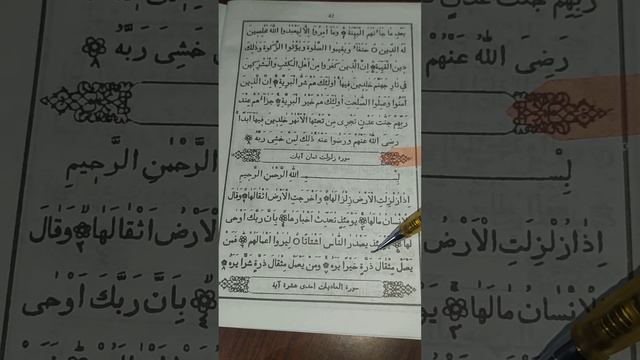 ٤٢
بعد ما جاءتهم البينة وما أمروا إلا ليعبدوا الله مخلصين
له الدين حنفاء ويقيموا الصلوة ويؤتوا الزكوة وذلك
دين القيمة إن الذين كفروا من أهل الكتب والمشركين
في نار جهنم خلدين فيها أولئك هم شر البرية إن الذين
آمنوا وعملوا الصلحت أولئك هم خير البرية جزاؤهم عند
ربهم جنت عدن تجري من تحتها الأنهر خلدين فيها أبدا
رضي الله عنهم ورضوا عنه ذلك لمن خشي ربه
سورة زلزلت ثمان آيات
بسم الله الرحمن الرحيم
إذا زلزلت الأرض زلزالها وأخرجت الأرض أثقالها وقال
الإنسان مالها يومئذ تحدث أخبارها بأن ربك أوحى
لها يومئذ يصدر الناس أشتاتا ليروا أعمالهم فمن
يعمل مثقال ذرة خيرا يره ومن يعمل مثقال ذرة شرا يره
سورة العاديات إحدى عشرة آية